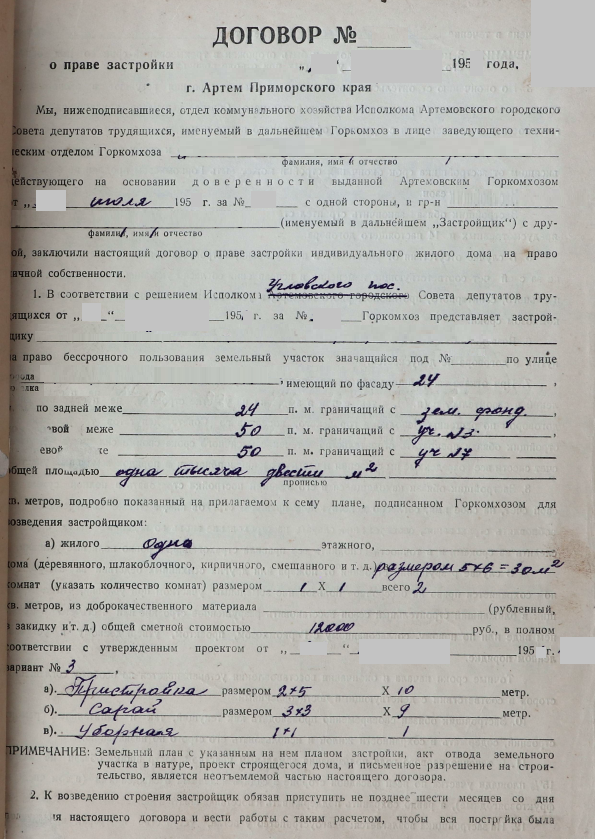 ДОГОВОР №
о праве застройки „ “ 195 года,
г. Артем Приморского края
Мы, нижеподписавшиеся, отдел коммунального хозяйства Исполкома Артемовского городского
Совета депутатов трудящихся, именуемый в дальнейшем Горкомхоз в лице заведующего техни-
ческим отделом Горкомхоза
фамилия, имя и отчество
действующего на основании доверенности выданной Артемовским Горкомхозом
от „ июля 195 г. за № с одной стороны, и гр-н
(именуемый в дальнейшем „Застройщик“) с дру-
фамилия, имя и отчество
ой, заключили настоящий договор о праве застройки индивидуального жилого дома на право
ичной собственности.
Угловского пос.
1. В соответствии с решением Исполкома Артемовского городского Совета депутатов тру-
дящихся от „ “ 195 г. за № Горкомхоз представляет застрой-
щику
на право бессрочного пользования земельный участок значащийся под № по улице
города
имеющий по фасаду 24 ,
по задней меже 24 п. м. граничащий с зем. фонд. ,
евой меже 50 п. м. граничащий с уч. №3. ,
евой же 50 п. м. граничащий с уч №7 ,
общей площадью одна тысяча двести м²
прописью
кв. метров, подробно показанный на прилагаемом к сему плане, подписанном Горкомхозом для
возведения застройщиком:
а) жилого одно этажного,
дома (деревянного, шлакоблочного, кирпичного, смешанного и т. д.) размером 5×6 = 30 м²
комнат (указать количество комнат) размером 1 Х 1 всего 2
кв. метров, из доброкачественного материала (рубленный,
в закидку и т. д.) общей сметной стоимостью 12000 руб., в полном
соответствии с утвержденным проектом от „ “ 195 г.
вариант № 3 ,
а). Пристройка размером 2×5 Х 10 метр.
б). Сарай размером 3×3 Х 9 метр.
в). Уборная 1×1 1
ПРИМЕЧАНИЕ: Земельный план с указанным на нем планом застройки, акт отвода земельного
участка в натуре, проект строящегося дома, и письменное разрешение на строи-
тельство, является неотъемлемой частью настоящего договора.
2. К возведению строения застройщик обязан приступить не позднее шести месяцев со дня
я настоящего договора и вести работы с таким расчетом, чтобы вся постройка была